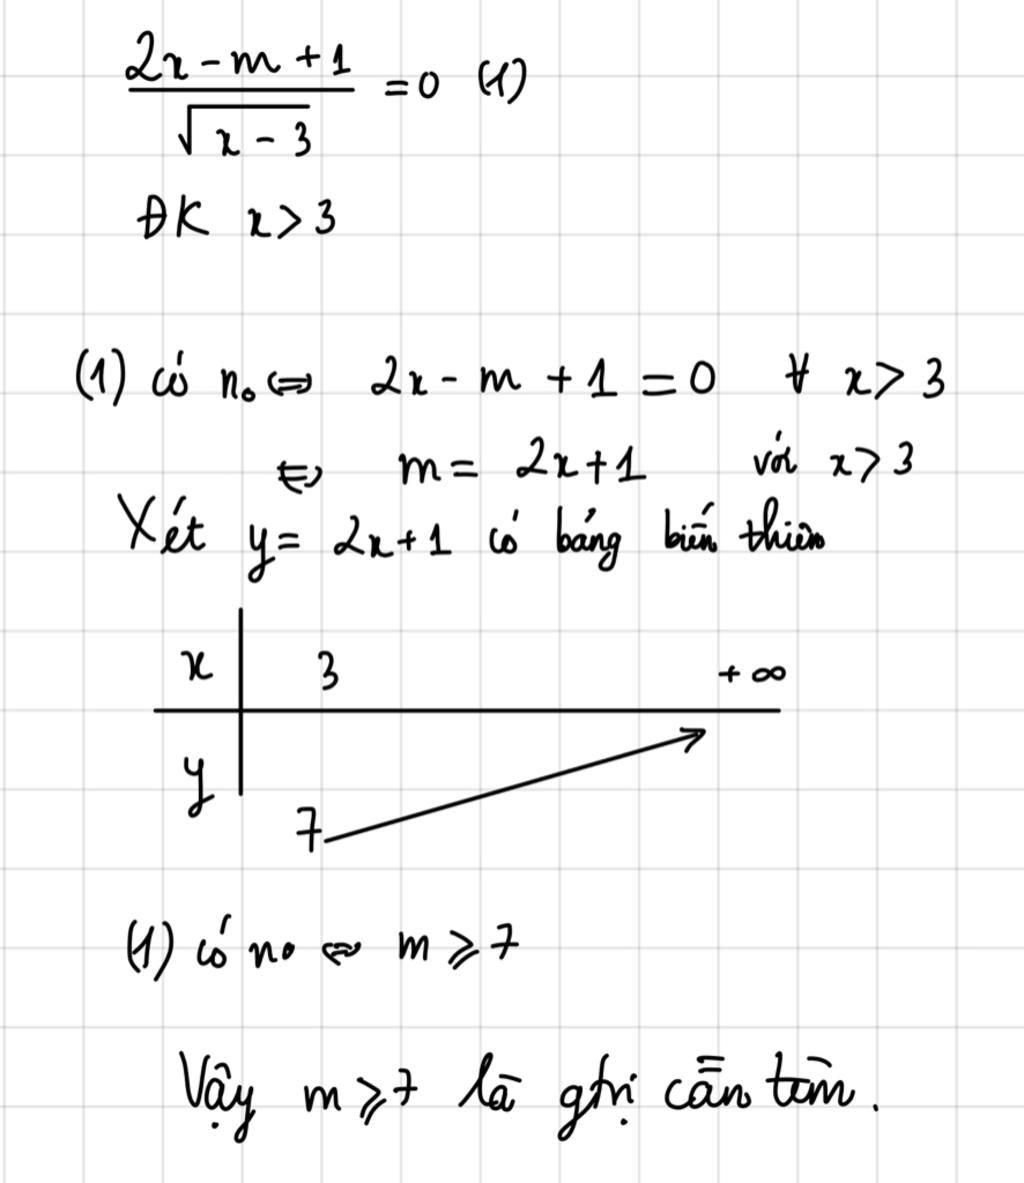 \frac{2x - m + 1}{\sqrt{x - 3}} = 0 (1)
ĐK x > 3
(1) có n₀ ⇔ 2x - m + 1 = 0 ∀ x > 3
⇔ m = 2x + 1 với x > 3
Xét y = 2x + 1 có bảng biến thiên
x 3 +∞
y
7
(1) có no ⇔ m ⩾ 7
Vậy m ⩾ 7 là gtrị cần tìm.